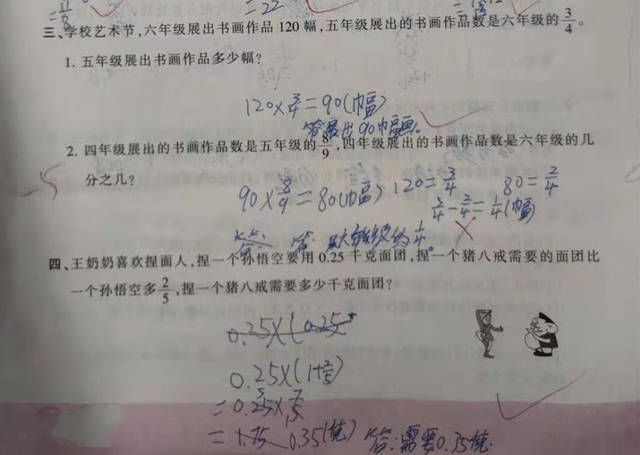 三、学校艺术节,六年级展出书画作品120幅,五年级展出的书画作品数是六年级的3/4。
1. 五年级展出书画作品多少幅?
120×3/4=90(幅)
答:展出90幅画。
2. 四年级展出的书画作品数是五年级的8/9,四年级展出的书画作品数是六年级的几
分之几?
-5
90×8/9=80(幅) 120=3/4 80=2/4
3/4-2/4=1/4(幅)
答: 级的1/4。
四、王奶奶喜欢捏面人,捏一个孙悟空要用0.25千克面团,捏一个猪八戒需要的面团比
一个孙悟空多2/5,捏一个猪八戒需要多少千克面团?
0.25×(0.25
0.25×(1+2/5)
=0.25×7/5
=1.75 0.35(千克) 答:需要0.35千克.